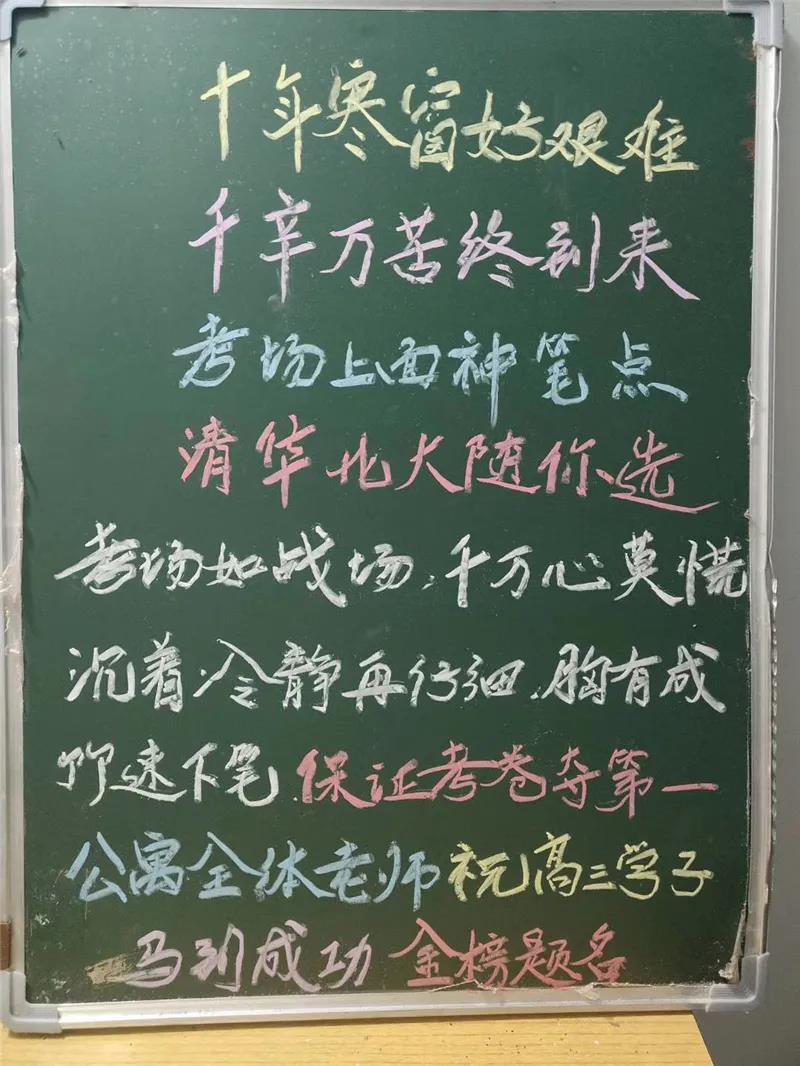 十年寒窗好艰难
千辛万苦终到来
考场上面神笔点
清华北大随你选
考场如战场,千万心莫慌
沉着冷静再仔细,胸有成
竹速下笔,保证考卷夺第一
公寓全体老师祝高三学子
马到成功 金榜题名